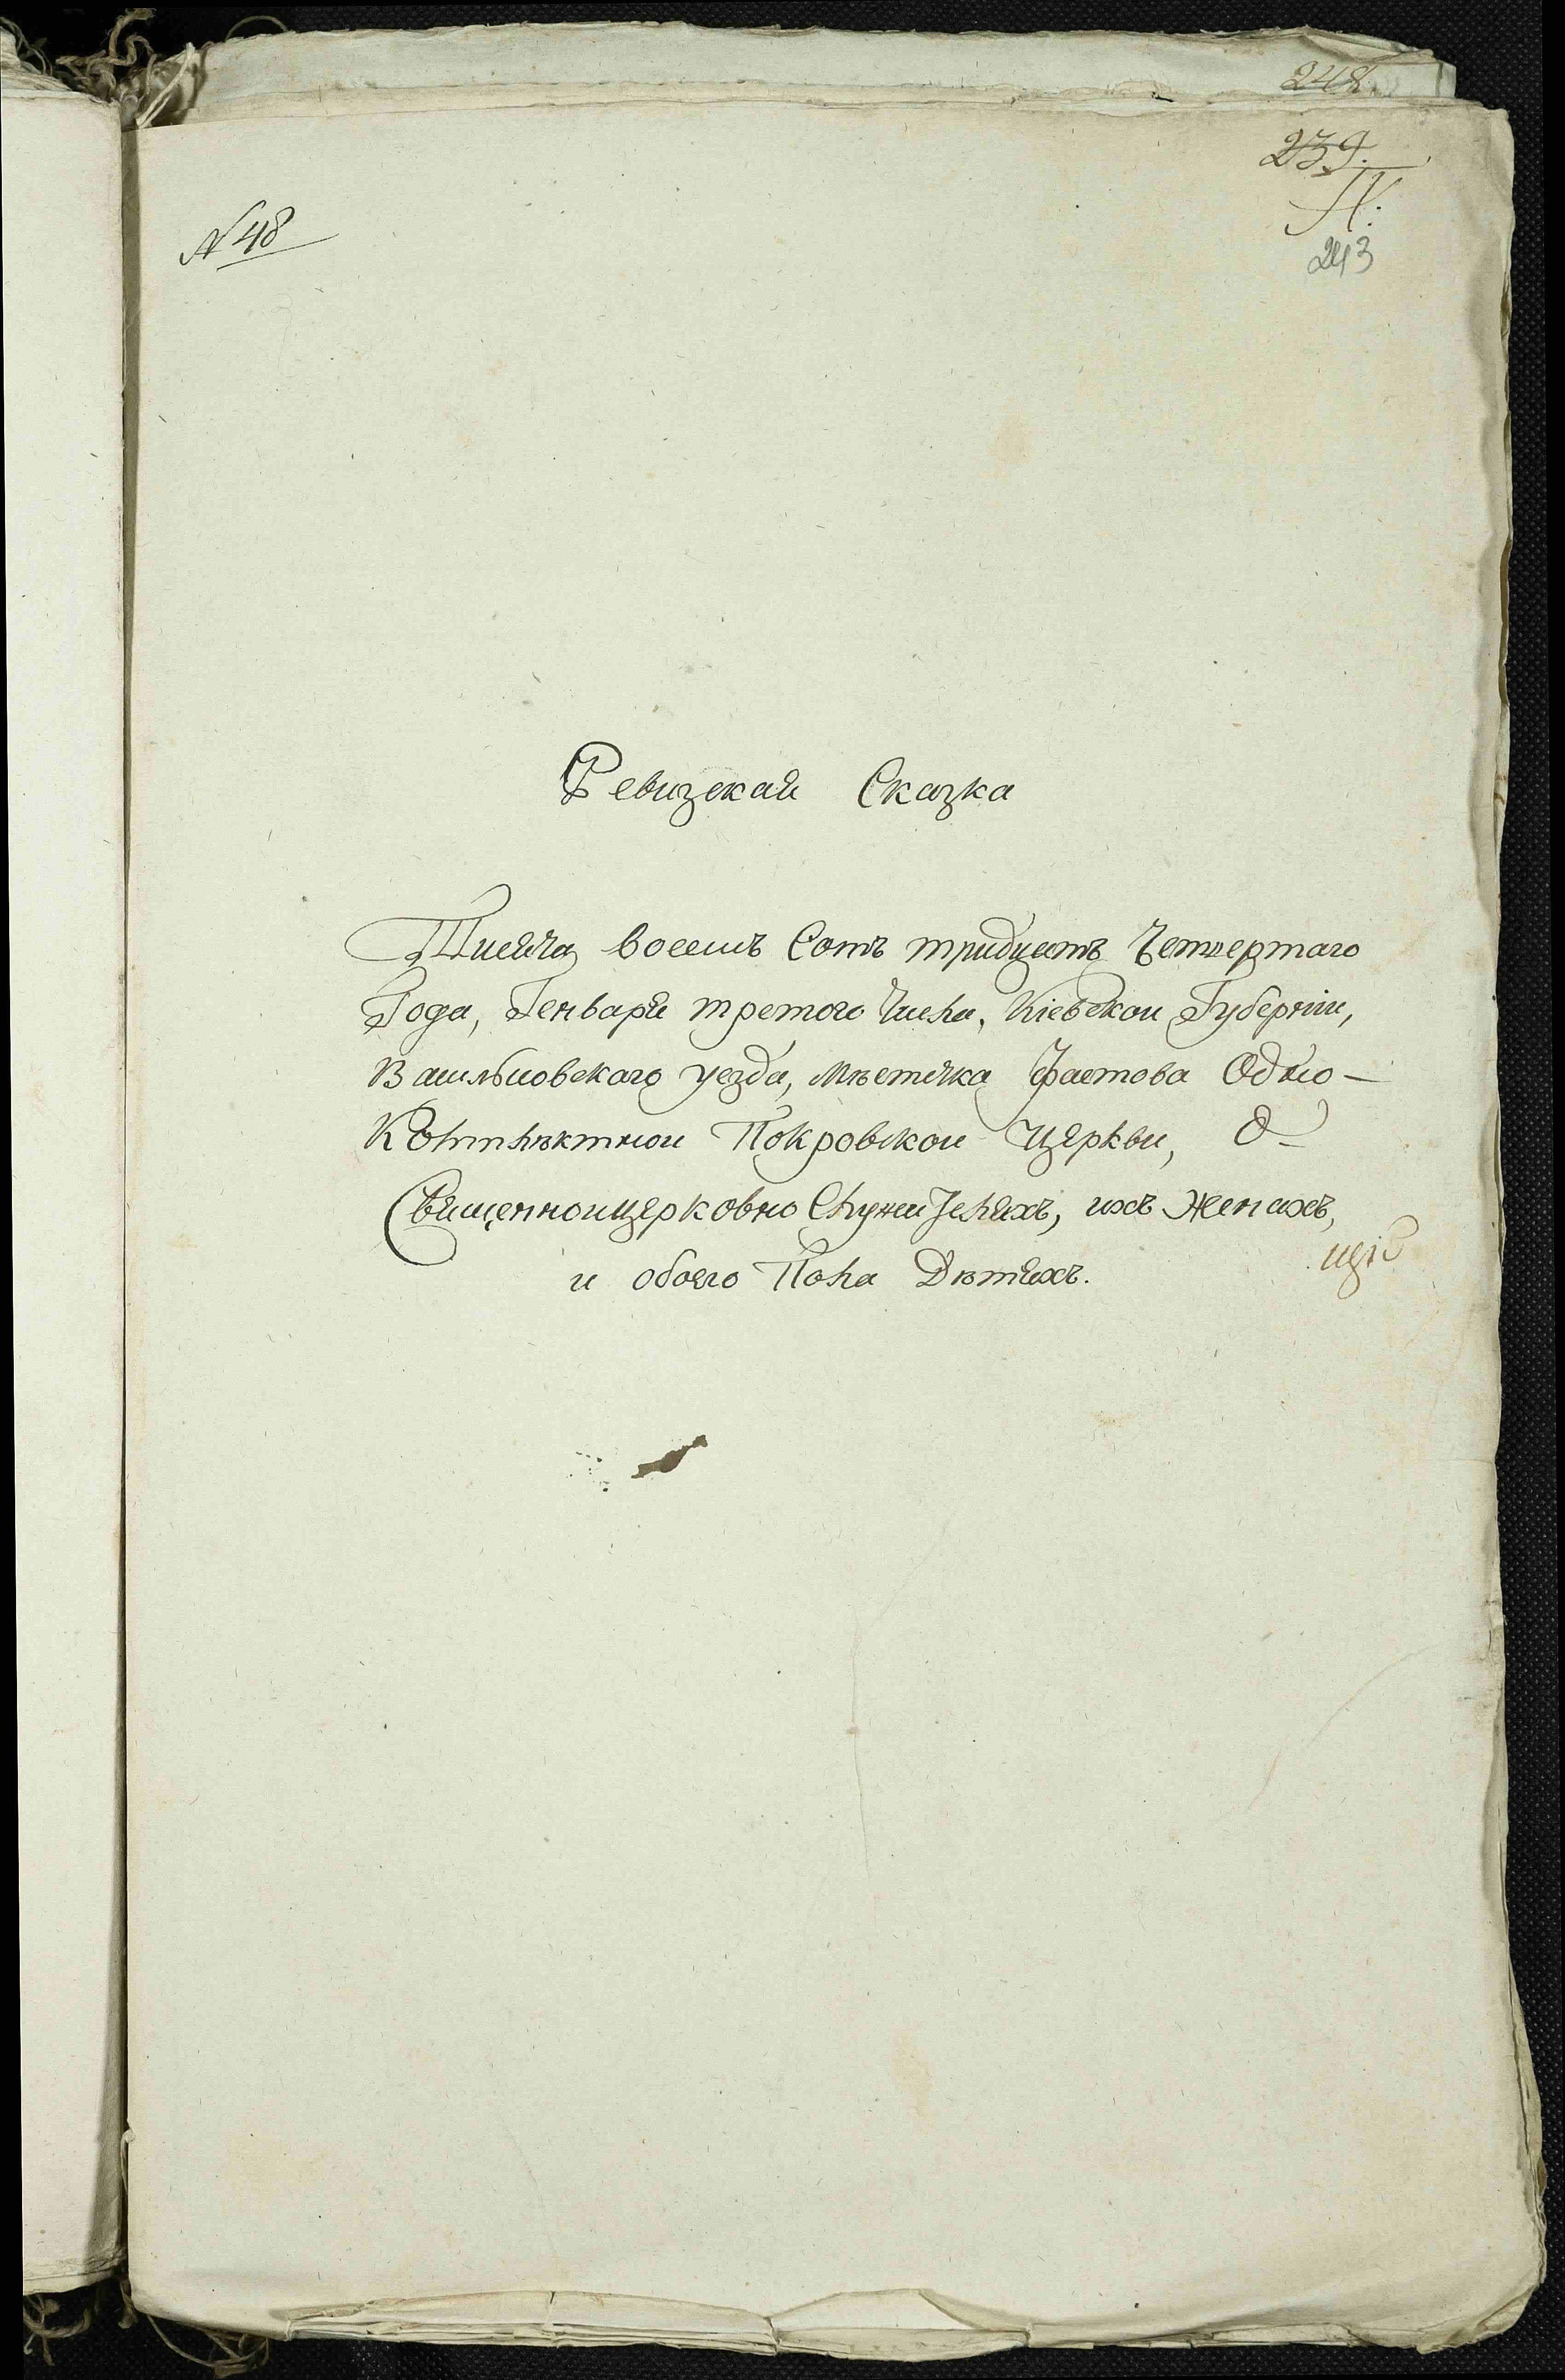 248
239.
243
№ 48
Ревизская Сказка
Тисяча восемъ Сотъ тридцятъ Четвертаго
Года, Генваря третого Числа, Кіевской Губерніи,
Васильковскаго уезда, Мѣстечка Фастова Одно-
Комплѣктной Покровской Церкви, О
Священноицерковно Служителяхъ, ихъ Женахъ,
и обоего Пола Дѣтяхъ.